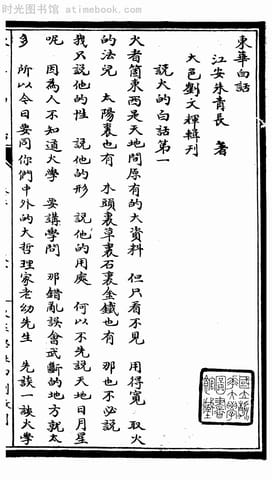 时光图书馆 www.atimebook.com
東華白話
江安朱青長 著
大邑劉文輝輯刊
說火的白話第一
火者箇東西是天地間原有的大資料 但只看不見 用得寬 取火
的法兒 太陽裏也有 水頭裏草裏石裏金鐵也有 那也不必說
我只說他的性 說他的形 說他的用處 何以不先說天地日月星
呢 因為人不知道火學 要講學問 那錯亂誤會武斷的地方就太
多 所以今日要同你們中外的大哲理家老幼先生 先談一談火學